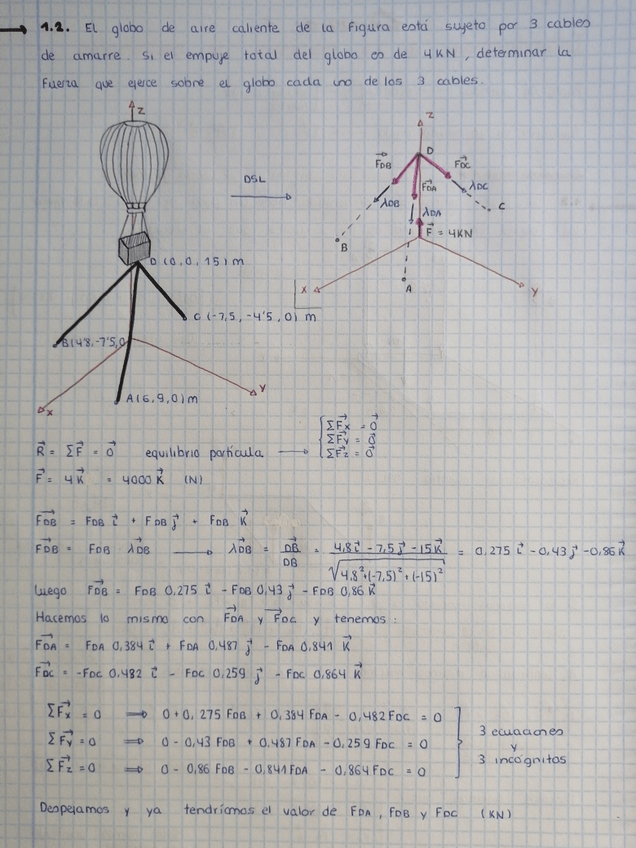 1.2. El globo de aire caliente de la Figura está sujeto por 3 cables
de amarre. Si el empuje total del globo es de 4KN, determinar la
Fuerza que ejerce sobre el globo cada uno de los 3 cables.
Z
Z
D
F⃗DB
F⃗DC
DSL
F⃗DA
λDC
λDB
λDA
C
F⃗ = 4KN
B
D (0,0,15) m
X
Y
A
C (-7,5, -4'5, 0) m
B(4'8, -7'5, 0
A (6,9,0) m
Y
X
R⃗ = ΣF⃗ = 0⃗ equilibrio partícula ⟶ { ΣF⃗x = 0⃗
ΣF⃗y = 0⃗
ΣF⃗z = 0⃗
F⃗ = 4 K⃗ = 4000 K⃗ (N)
F⃗DB = FDB i⃗ + FDB j⃗ + FDB K⃗
F⃗DB = FDB λ⃗DB ⟶ λ⃗DB = D⃗B / DB = 4,8 i⃗ - 7,5 j⃗ - 15 K⃗ / √4,8² + (-7,5)² + (-15)² = 0,275 i⃗ - 0,43 j⃗ - 0,86 K⃗
luego F⃗DB = FDB 0,275 i⃗ - FDB 0,43 j⃗ - FDB 0,86 K⃗
Hacemos lo mismo con F⃗DA y F⃗DC y tenemos:
F⃗DA = FDA 0,384 i⃗ + FDA 0,487 j⃗ - FDA 0,841 K⃗
F⃗DC = -FDC 0,482 i⃗ - FDC 0,259 j⃗ - FDC 0,864 K⃗
ΣF⃗x = 0 ⟹ 0 + 0,275 FDB + 0,384 FDA - 0,482 FDC = 0
ΣF⃗y = 0 ⟹ 0 - 0,43 FDB + 0,487 FDA - 0,259 FDC = 0
ΣF⃗z = 0 ⟹ 0 - 0,86 FDB - 0,841 FDA - 0,864 FDC = 0
3 ecuaciones
y
3 incógnitos
Despejamos y ya tendríamos el valor de FDA, FDB y FDC (KN)